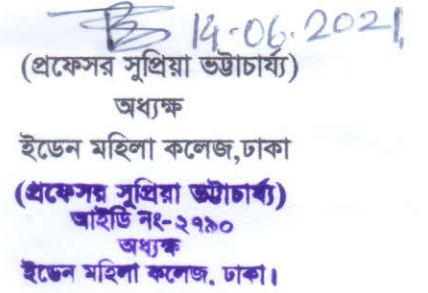 14.06.2021
(প্রফেসর সুপ্রিয়া ভট্টাচার্য্য)
অধ্যক্ষ
ইডেন মহিলা কলেজ,ঢাকা
(প্রফেসর সুপ্রিয়া ভট্টাচার্য্য)
আইডি নং-২৭৯০
অধ্যক্ষ
ইডেন মহিলা কলেজ, ঢাকা।